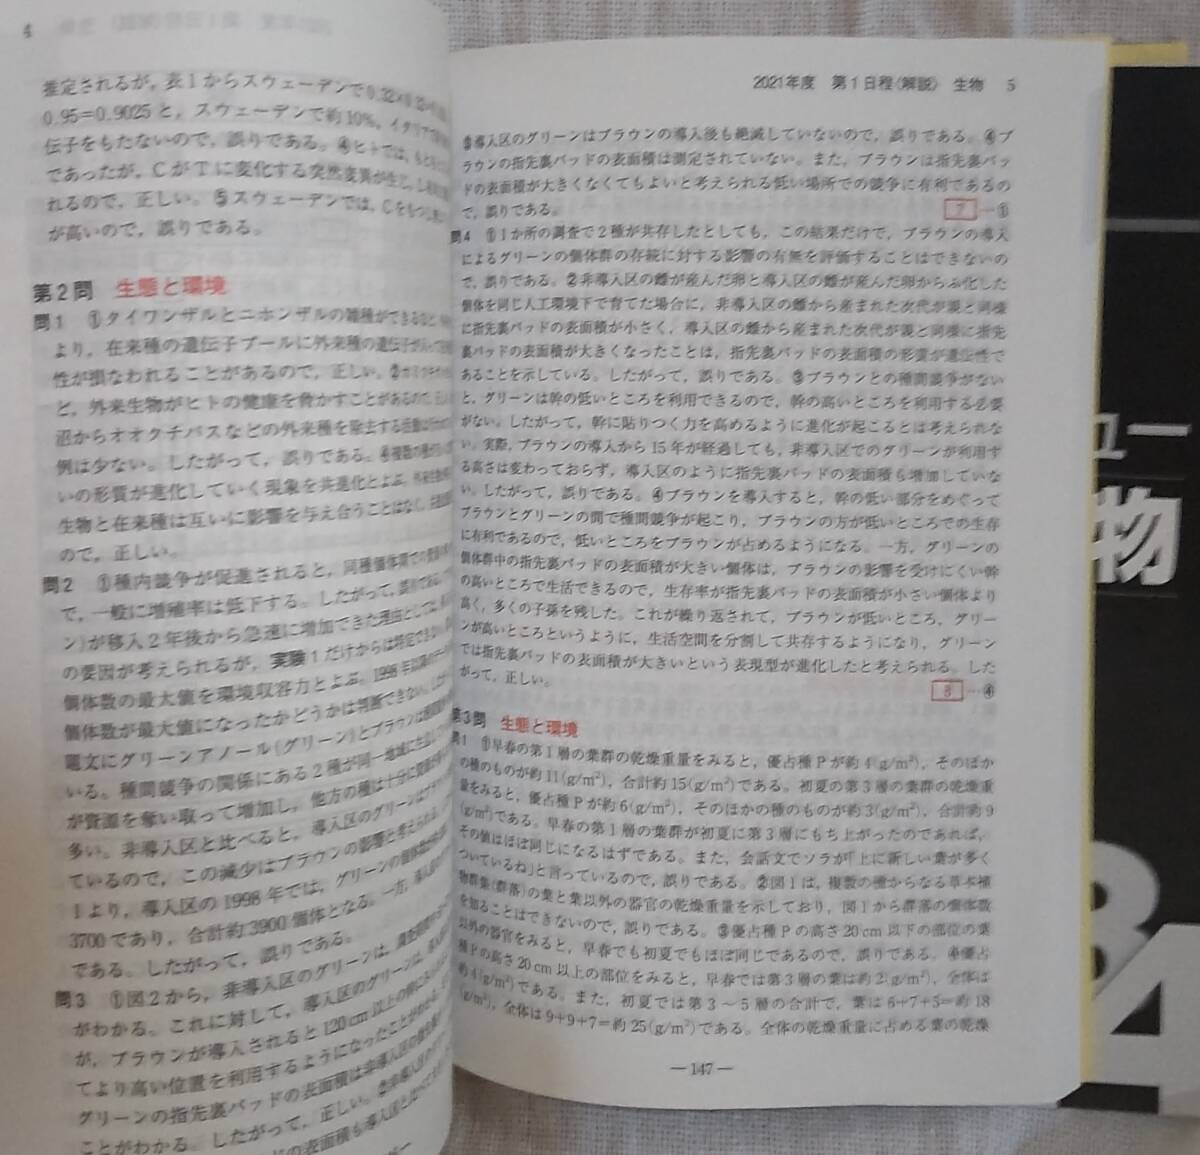 推定されるが，表1からスウェーデンで0.32×0.32
0.95＝0.9025と，スウェーデンで約10%，イタリア
伝子をもたないので，誤りである。④ヒトでは，もと
であったが，CがTに変化する突然変異が生じ，
れるので，正しい。⑤スウェーデンでは，Cをもつ
が高いので，誤りである。
第2問　生態と環境
問1　①タイワンザルとニホンザルの雑種ができると
より，在来種の遺伝子プールに外来種の遺伝子が
性が損なわれることがあるので，正しい。②
ど，外来生物がヒトの健康を脅かすことがあるので，
沼からオオクチバスなどの外来種を除去する活動は
例は少ない。したがって，誤りである。④複数の種が
いの形質が進化していく現象を共進化とよぶ。外来
生物と在来種は互いに影響を与え合うことはなく，
ので，正しい。
問2　①種内競争が促進されると，同種個体間での
で，一般に増殖率は低下する。したがって，誤りである。
ン)が移入2年後から急速に増加できた理由としては，
の要因が考えられるが，実験1だけからは特定できない
個体数の最大値を環境収容力とよぶ。1998年以降の
個体数が最大値になったかどうかは判断できない。
題文にグリーンアノール(グリーン)とブラウンは
いる。種間競争の関係にある2種が同一地域に生息
が資源を奪い取って増加し，他方の種は十分に資源が
多い。非導入区と比べると，導入区のグリーンは
ているので，この減少はブラウンの影響と考えられる。
1より，導入区の1998年では，グリーンの個体数
3700であり，合計約3900個体となる。一方，
である。したがって，誤りである。
問3　①図2から，非導入区のグリーンは，
がわかる。これに対して，導入区のグリーンは，
が，ブラウンが導入されると120cm以上の
てより高い位置を利用するようになったことがわかる。
グリーンの指先裏パッドの表面積は非導入区の
ことがわかる。したがって，正しい。②非導入区の
の表面積も導入区と比べて
2021年度　第1日程〈解説〉　生物　5
③導入区のグリーンはブラウンの導入後も絶滅していないので，誤りである。④ブ
ラウンの指先裏パッドの表面積は測定されていない。また，ブラウンは指先裏パッ
ドの表面積が大きくなくてもよいと考えられる低い場所での競争に有利であるの
で，誤りである。　7 …①
問4　①1か所の調査で2種が共存したとしても，この結果だけで，ブラウンの導入
によるグリーンの個体群の存続に対する影響の有無を評価することはできないの
で，誤りである。②非導入区の雌が産んだ卵と導入区の雌が産んだ卵からふ化した
個体を同じ人工環境下で育てた場合に，非導入区の雌から産まれた次代が親と同様
に指先裏パッドの表面積が小さく，導入区の雌から産まれた次代が親と同様に指先
裏パッドの表面積が大きくなったことは，指先裏パッドの表面積の形質が遺伝性で
あることを示している。したがって，誤りである。③ブラウンとの種間競争がない
と，グリーンは幹の低いところを利用できるので，幹の高いところを利用する必要
がない。したがって，幹に貼りつく力を高めるように進化が起こるとは考えられな
い。実際，ブラウンの導入から15年が経過しても，非導入区でのグリーンが利用す
る高さは変わっておらず，導入区のように指先裏パッドの表面積も増加していな
い。したがって，誤りである。④ブラウンを導入すると，幹の低い部分をめぐって
ブラウンとグリーンの間で種間競争が起こり，ブラウンの方が低いところでの生存
に有利であるので，低いところをブラウンが占めるようになる。一方，グリーンの
個体群中の指先裏パッドの表面積が大きい個体は，ブラウンの影響を受けにくい幹
の高いところで生活できるので，生存率が指先裏パッドの表面積が小さい個体より
高く，多くの子孫を残した。これが繰り返されて，ブラウンが低いところ，グリー
ンが高いところというように，生活空間を分割して共存するようになり，グリーン
では指先裏パッドの表面積が大きいという表現型が進化したと考えられる。した
がって，正しい。　8 …④
第3問　生態と環境
問1　①早春の第1層の葉群の乾燥重量をみると，優占種Pが約4(g/m²)，そのほか
の種のものが約11(g/m²)，合計約15(g/m²)である。初夏の第3層の葉群の乾燥重
量をみると，優占種Pが約6(g/m²)，そのほかの種のものが約3(g/m²)，合計約9
(g/m²)である。早春の第1層の葉群が初夏に第3層にもち上がったのであれば，
その値はほぼ同じになるはずである。また，会話文でソラが「上に新しい葉が多く
ついているね」と言っているので，誤りである。②図1は，複数の種からなる草本植
物群集(群落)の葉と葉以外の器官の乾燥重量を示しており，図1から群落の個体数
を知ることはできないので，誤りである。③優占種Pの高さ20cm以下の部位の葉
以外の器官をみると，早春でも初夏でもほぼ同じであるので，誤りである。④優占
種Pの高さ20cm以上の部位をみると，早春では第3層の葉は約2(g/m²)，全体は
約4(g/m²)である。また，初夏では第3～5層の合計で，葉は6+7+5＝約18
(g/m²)，全体は9+9+7＝約25(g/m²)である。全体の乾燥重量に占める葉の乾燥
—147—
ュー
物